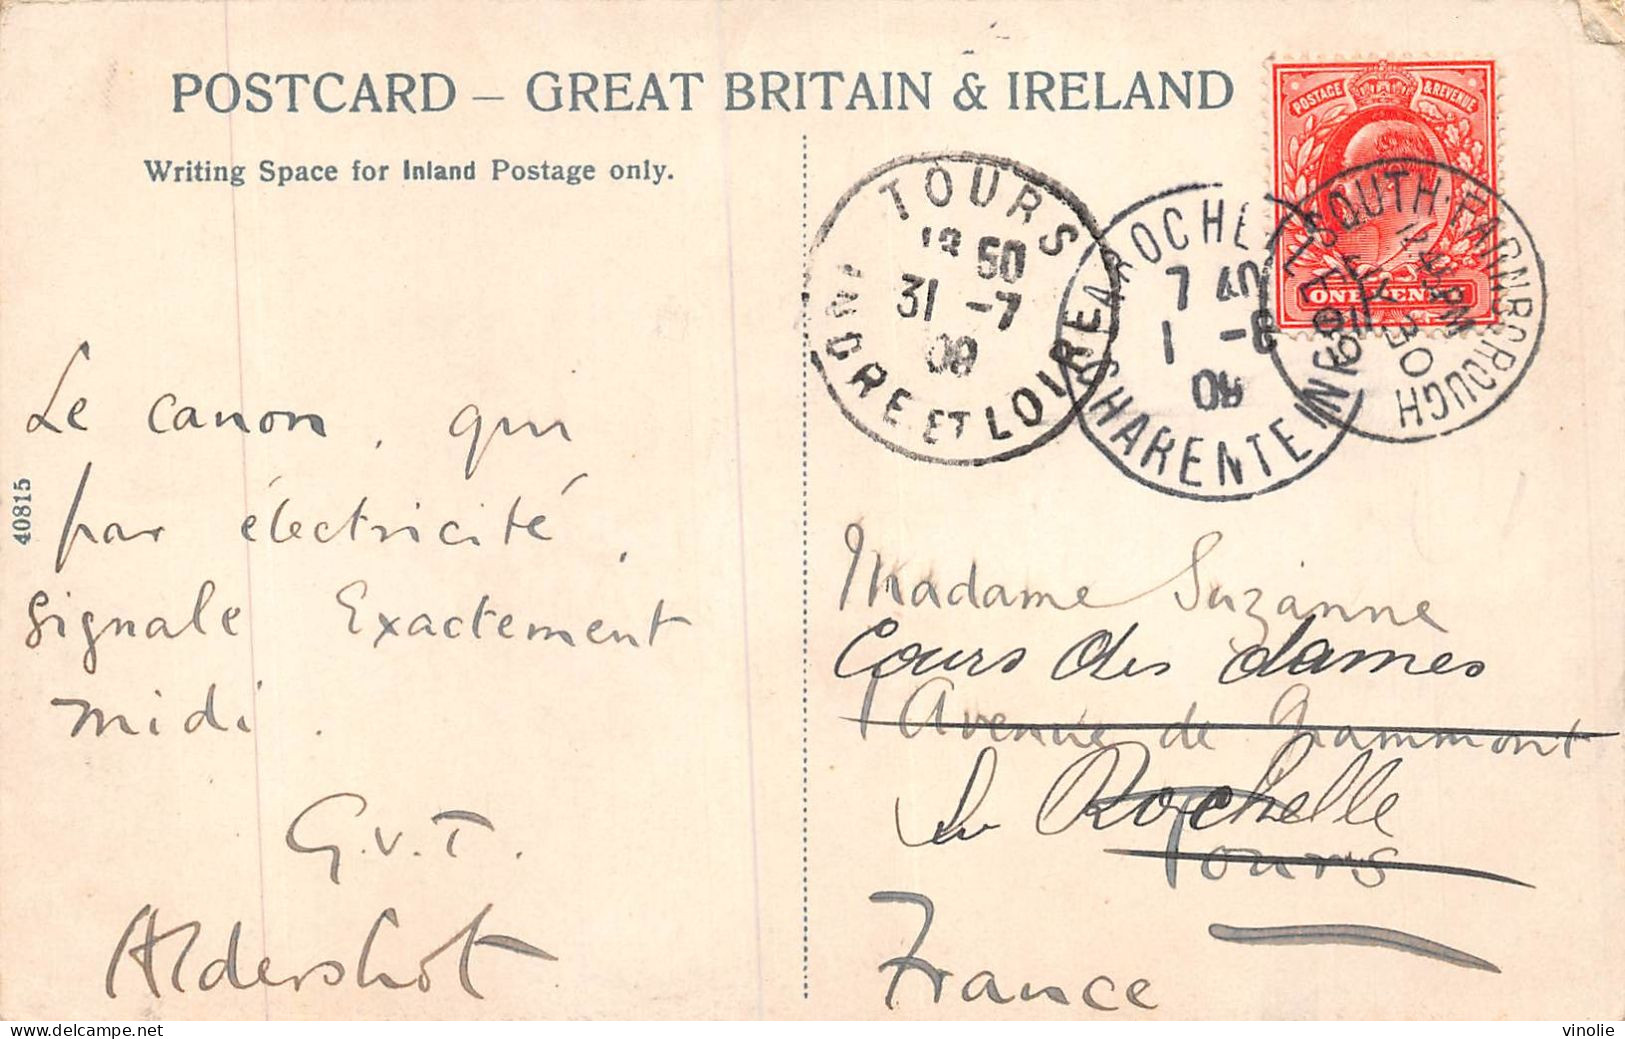 POSTCARD – GREAT BRITAIN & IRELAND
Writing Space for Inland Postage only.
POSTAGE & REVENUE
ONE PENNY
TOURS
50
31 -7
09
INDRE ET LOIRE
LA ROCHELLE
7 40
1 -8
09
CHARENTE INFRE
SOUTH-FARNBOROUGH
PM
JY 30
09
Le canon, qui
par électricité,
signale Exactement
midi.
G.v.T.
Aldershot
40815
Madame Suzanne
Cours des dames
Avenue de Grammont
La Rochelle
Tours
France
vinolie
delcampe.net